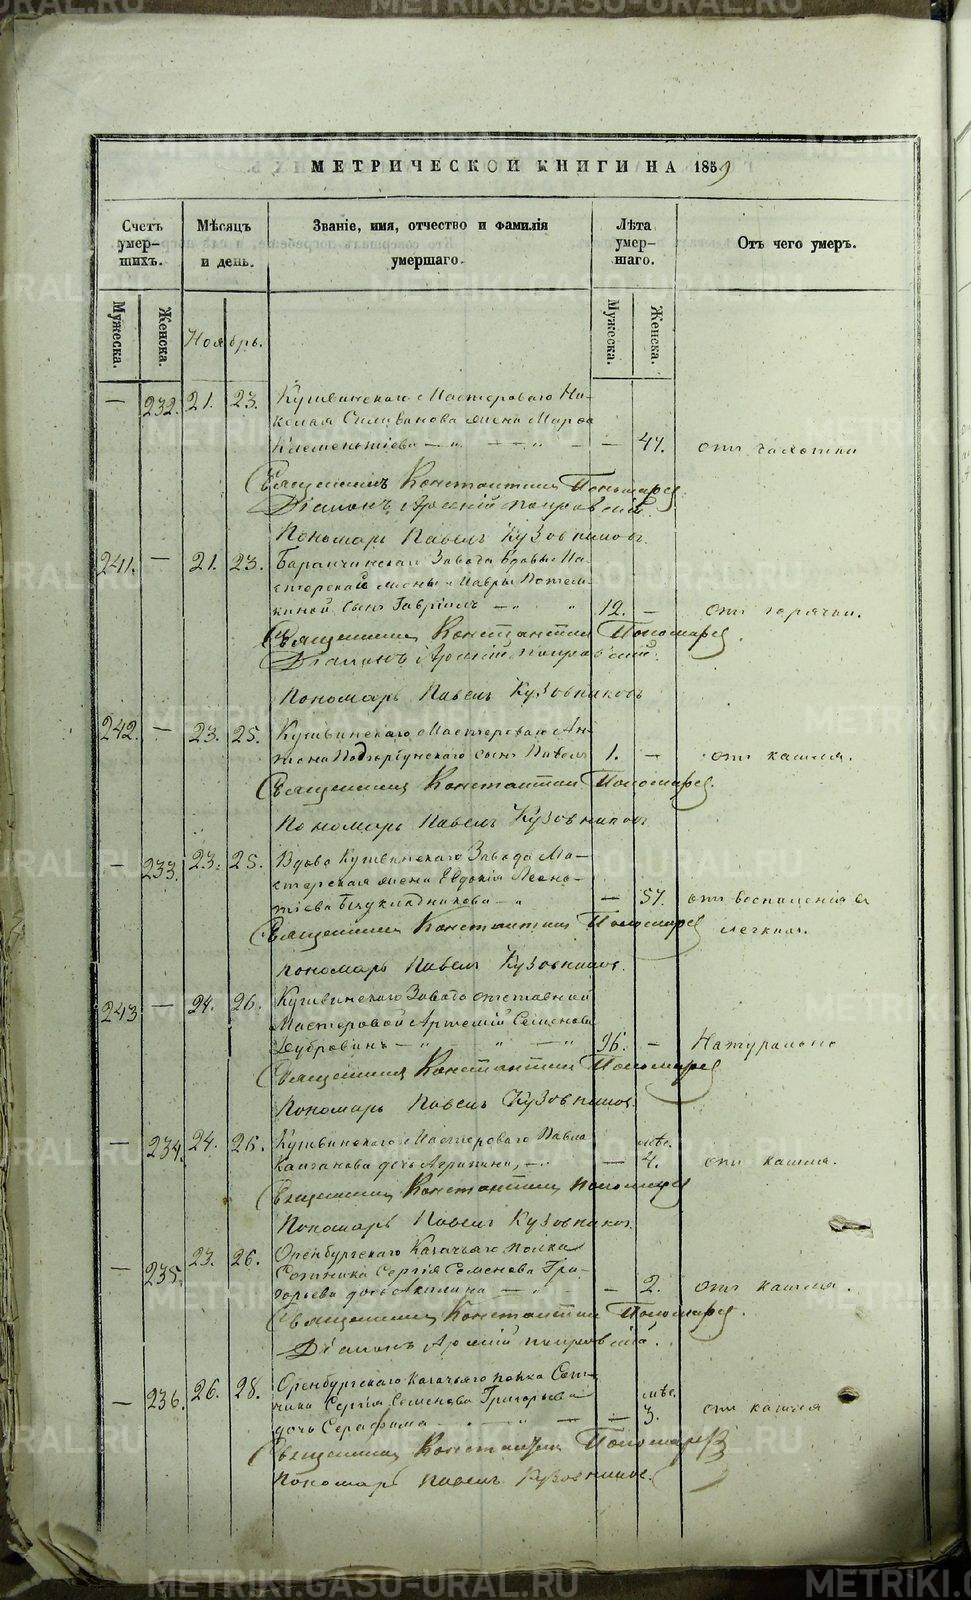 МЕТРИЧЕСКОЙ КНИГИ НА 1859
Счетъ умершихъ.
Мѣсяцъ и день.
Званіе, имя, отчество и фамилія умершаго.
Лѣта умершаго.
Отъ чего умеръ.
Мужеска.
Женска.
Ноябрь.
Мужеска.
Женска.
— 232. 21. 23. Кушвинскаго Мастероваго Ни-
колая Селиванова жена Марфа
Климентіева — 47. отъ чахотки
Священникъ Константинъ Пономаревъ
Діаконъ Арсеній
Пономарь Павелъ Кузовниковъ.
241. — 21. 23. Баранчинскаго Завода вдовы Ма-
стерской жены Мавры
сынъ Гавріилъ 12. — отъ горячки.
Священникъ Константинъ Пономаревъ.
Діаконъ Арсеній
Пономарь Павелъ Кузовниковъ
242. — 23. 25. Кушвинскаго Мастероваго Ан-
тона сынъ Павелъ 1. — отъ кашля.
Священникъ Константинъ Пономаревъ.
Пономарь Павелъ Кузовниковъ
— 233. 23. 25. Вдова Кушвинскаго Завода Ма-
стерская жена Евдокія Леон-
тіева — 57. отъ воспаленія въ
легкихъ.
Священникъ Константинъ Пономаревъ
Пономарь Павелъ Кузовниковъ.
243 — 24. 26. Кушвинскаго Завода отставной
Мастеровой Артемій Семеновъ
Дубровинъ 96. — Натурально
Священникъ Константинъ Пономаревъ
Пономарь Павелъ Кузовниковъ.
— 234. 24. 26. Кушвинскаго Мастероваго Павла
дочь Агрипина, — мѣс. 4. отъ кашля.
Священникъ Константинъ Пономаревъ
Пономарь Павелъ Кузовниковъ.
— 235. 23. 26. Оренбургскаго Казачьяго полка
Сотника Сергія Семенова Гри-
горьева дочь Акилина — 2. отъ кашля.
Священникъ Константинъ Пономаревъ.
Діаконъ Арсеній
— 236. 26. 28. Оренбургскаго казачьяго полка Сот-
ника Сергія Семенова Григорьева
дочь Серафима — мѣс. 3. отъ кашля
Священникъ Константинъ Пономаревъ
Пономарь Павелъ Кузовниковъ.
METRIKI.GASO-URAL.RU